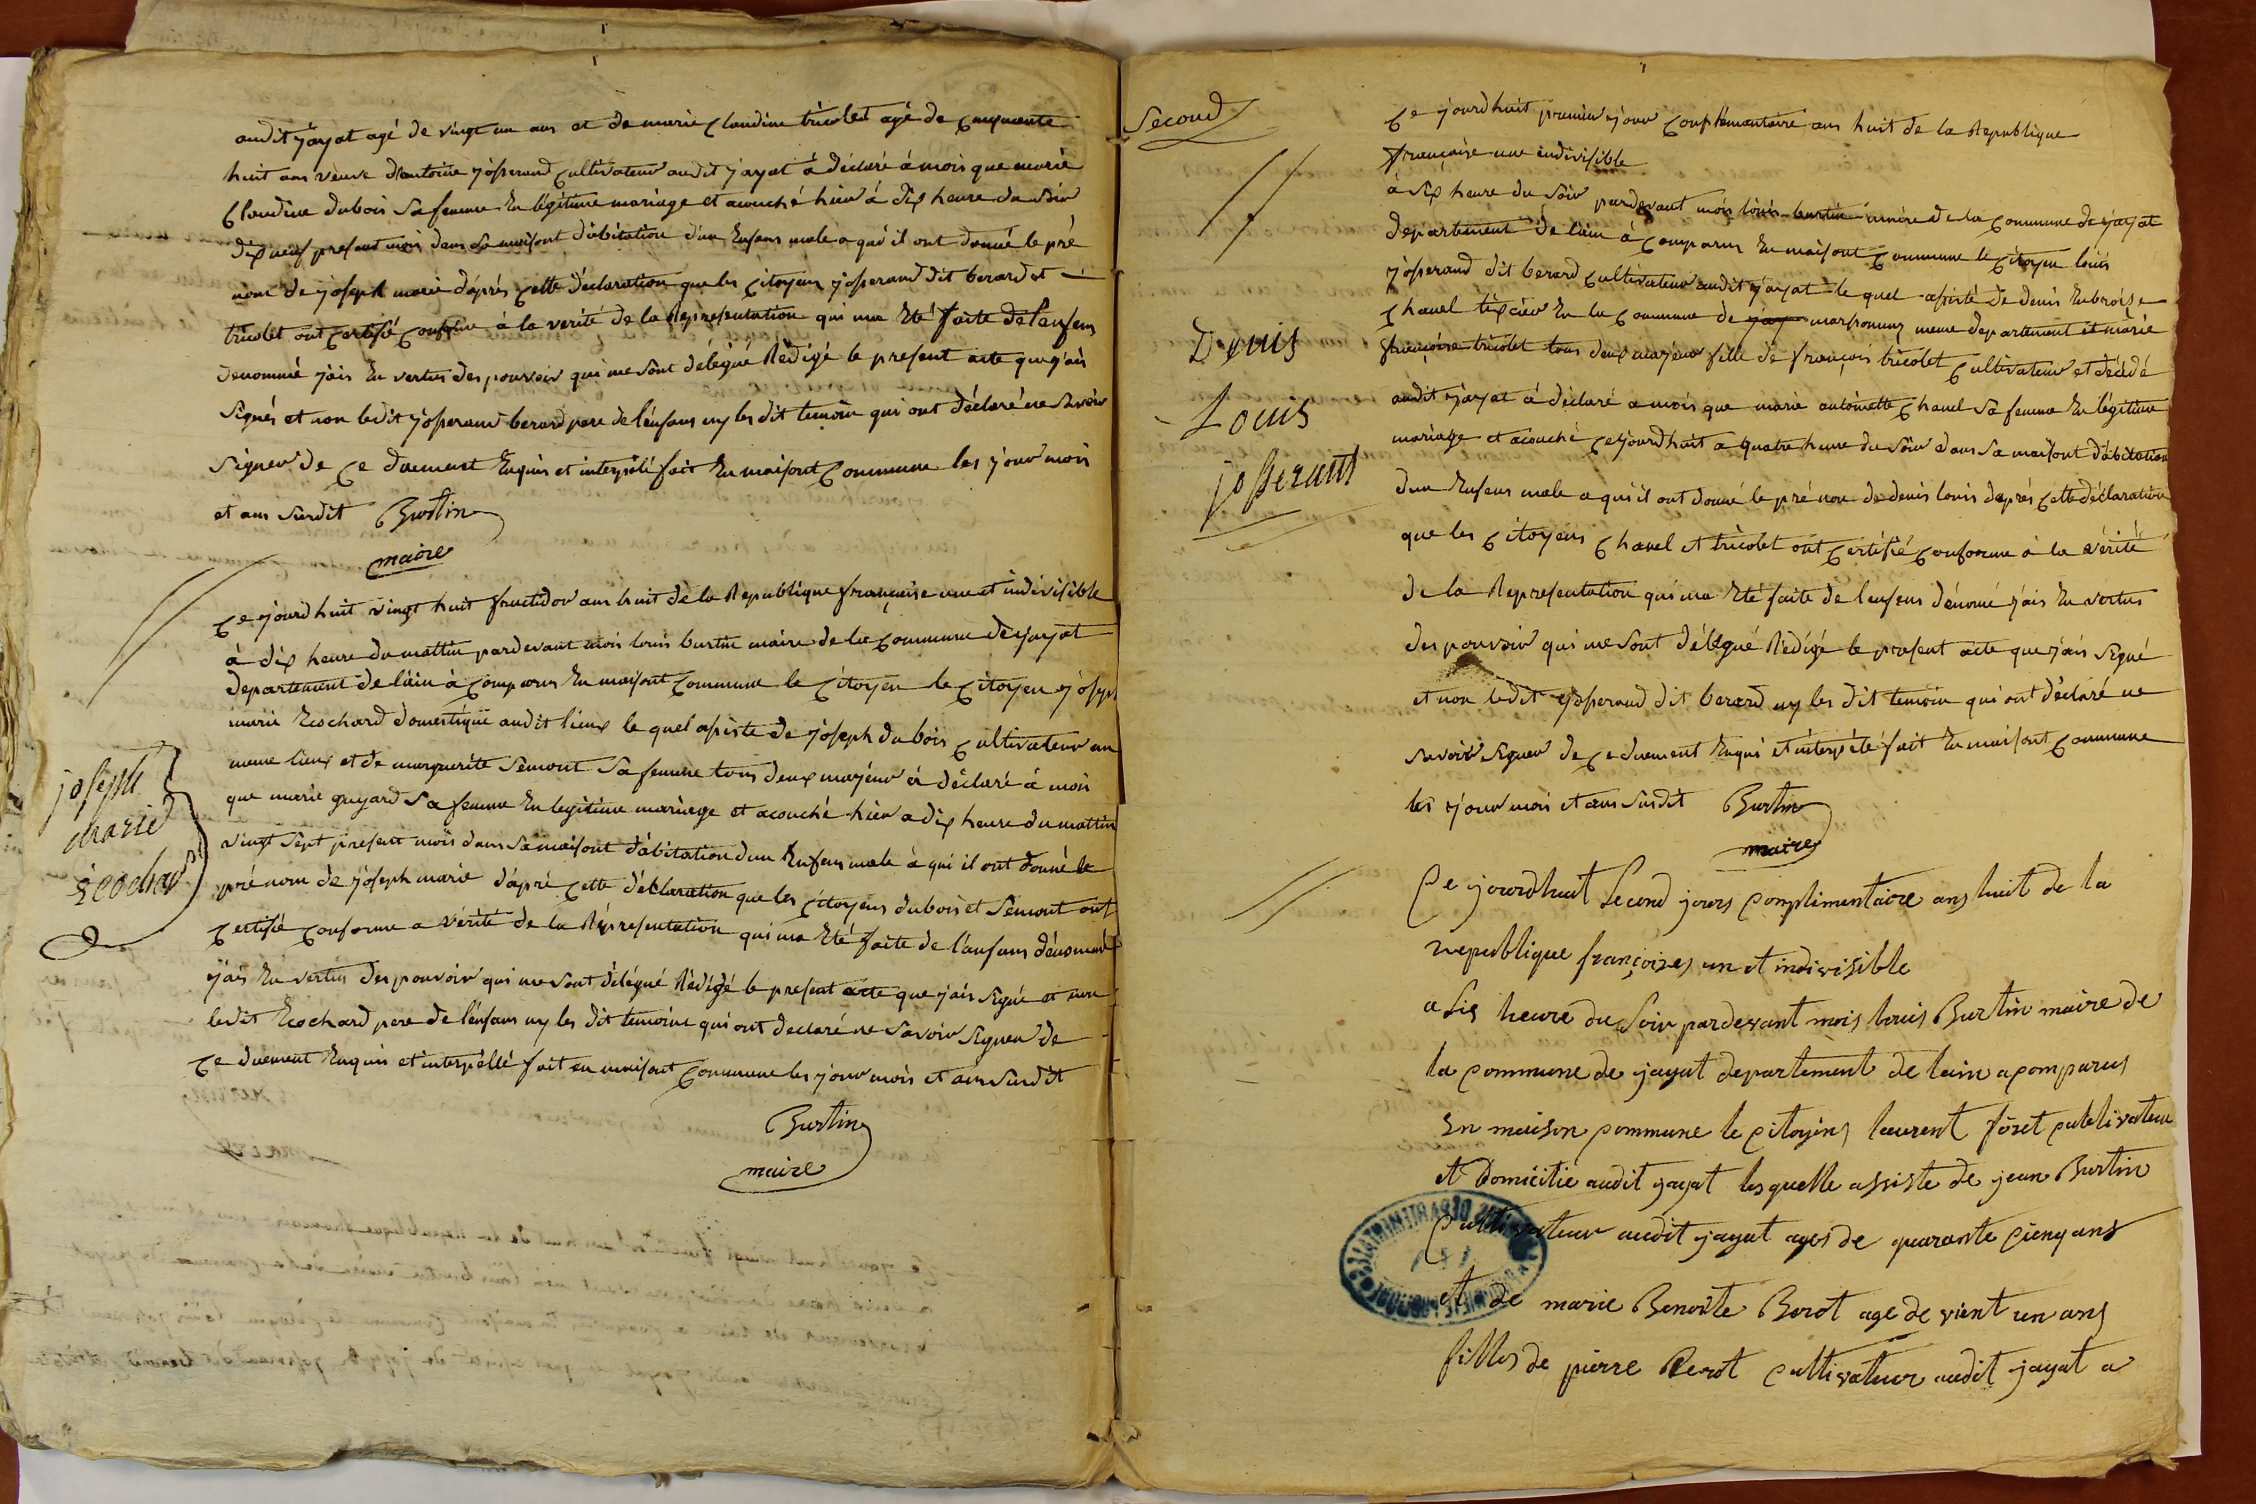 audit jayat agé de vingt un ans et de marie Claudine tricolet agé de cinquente
huit ans veuve d'antoine josserand cultivateur audit jayat à déclaré à mois que marie
Claudine dubois sa femme En légitime mariage et acouché hier à dix heure du soir
dix neuf present mois dans sa maisont d'àbitation d'un Enfans male a qui il ont donné le pré
nom de joseph marie d'àprès cette déclaration que les citoyens josserand dit berard et
tricolet ont certifié conforme à la verité de la Representation qui ma Eté faite de l'enfans
denommé j'ais En vertus des pouvoir qui me sont délégué Rédigé le present acte que j'ais
signés et non ledit josserand berard pere de l'énfans ny les dit temoin qui ont déclaré ne savoir
signer de ce duement Enquis et interpélé fait En maisont commune les jour mois
et ans surdit Burtin
maire
joseph
marie
Ecochard
Ce jourdhuit vingt huit fructidor ans huit de la Republique française une et indivisible
à dix heure du mattin pardevant mois louis burtin maire de la commune de jayat
departement de l'àin à comparus En maisont commune le citoyen le citoyen joseph
marie Ecochard domestique audit lieux le quel assiste de joseph dubois cultivateur au
meme lieux et de marguerite semont sa femme tous deux majeur à déclaré à mois
que marie guyard sa femme En legitime mariage et acouché hier a dix heure du mattin
vingt sept present mois dans sa maisont d'àbitation dun Enfans male à qui il ont donné le
pré nom de joseph marie d'àpré cette déclaration que les citoyens dubois et semont ont
certifié conforme a vérité de la Répresentation qui ma Eté faite de l'enfans dénommé
j'ais En vertus des pouvoir qui me sont délégué Rédigé le present acte que j'ais signé et non
ledit Ecochard pere de l'énfans ny les dit temoins qui ont declaré ne savoir signer de
ce duement Enquis et interpéllé fait en maisont commune les jour mois et ans surdit
Burtin
maire
Second
Denis
Louis
josserant
Ce jourdhuit premier jour complémentaire ans huit de la Republique
française une indivisible
à six heure du soir pardevant mois louis burtin maire de la commune de jayat
departement de l'àin à comparus En maisont commune le citoyen louis
josserand dit berard cultivateur audit jayat le quel assisté de denis
chanel En la commune de marsonnas meme departement et màrie
françoise tricolet tous deux majeur fille de françois tricolet cultivateur et décédé
audit jayat à déclaré a mois que marie antoinette chanel sa femme En légitime
mariage et acouché cejourdhuit a quatre heure du soir dans sa maisont d'àbitation
dun Enfans male a qui il ont donné le pré non de denis louis daprés cette déclaration
que les citoyens chanel et tricolet ont certifié conforme à la vérité
de la Representation qui ma Eté faite de lenfans dénomé j'ais En vertus
des pouvoir qui me sont délégué Rédigé le present acte que j'ais signé
et non ledit josserand dit berard ny les dit temoin qui ont déclaré ne
savoir signer de ce duement Enquis et interpélé fait En maisont commune
les jour mois et ans surdit Burtin
maire
Ce jourdhuit second jours complimentaire ans huit de la
republique françoises un et indivisible
a sis heure du soir pardevant mois louis Burtin maire de
la commune de jayat departement de lain a comparus
En maison commune le citoyens laurent fôret cultivateur
et Domicilie audit jayat lesquelle assiste de jean Burtin
Cultivateur audit jayat ages de quarante cienq ans
et de marie Benoite Berot age de vient un ans
filles de pierre Berot cultivateur audit jayat a